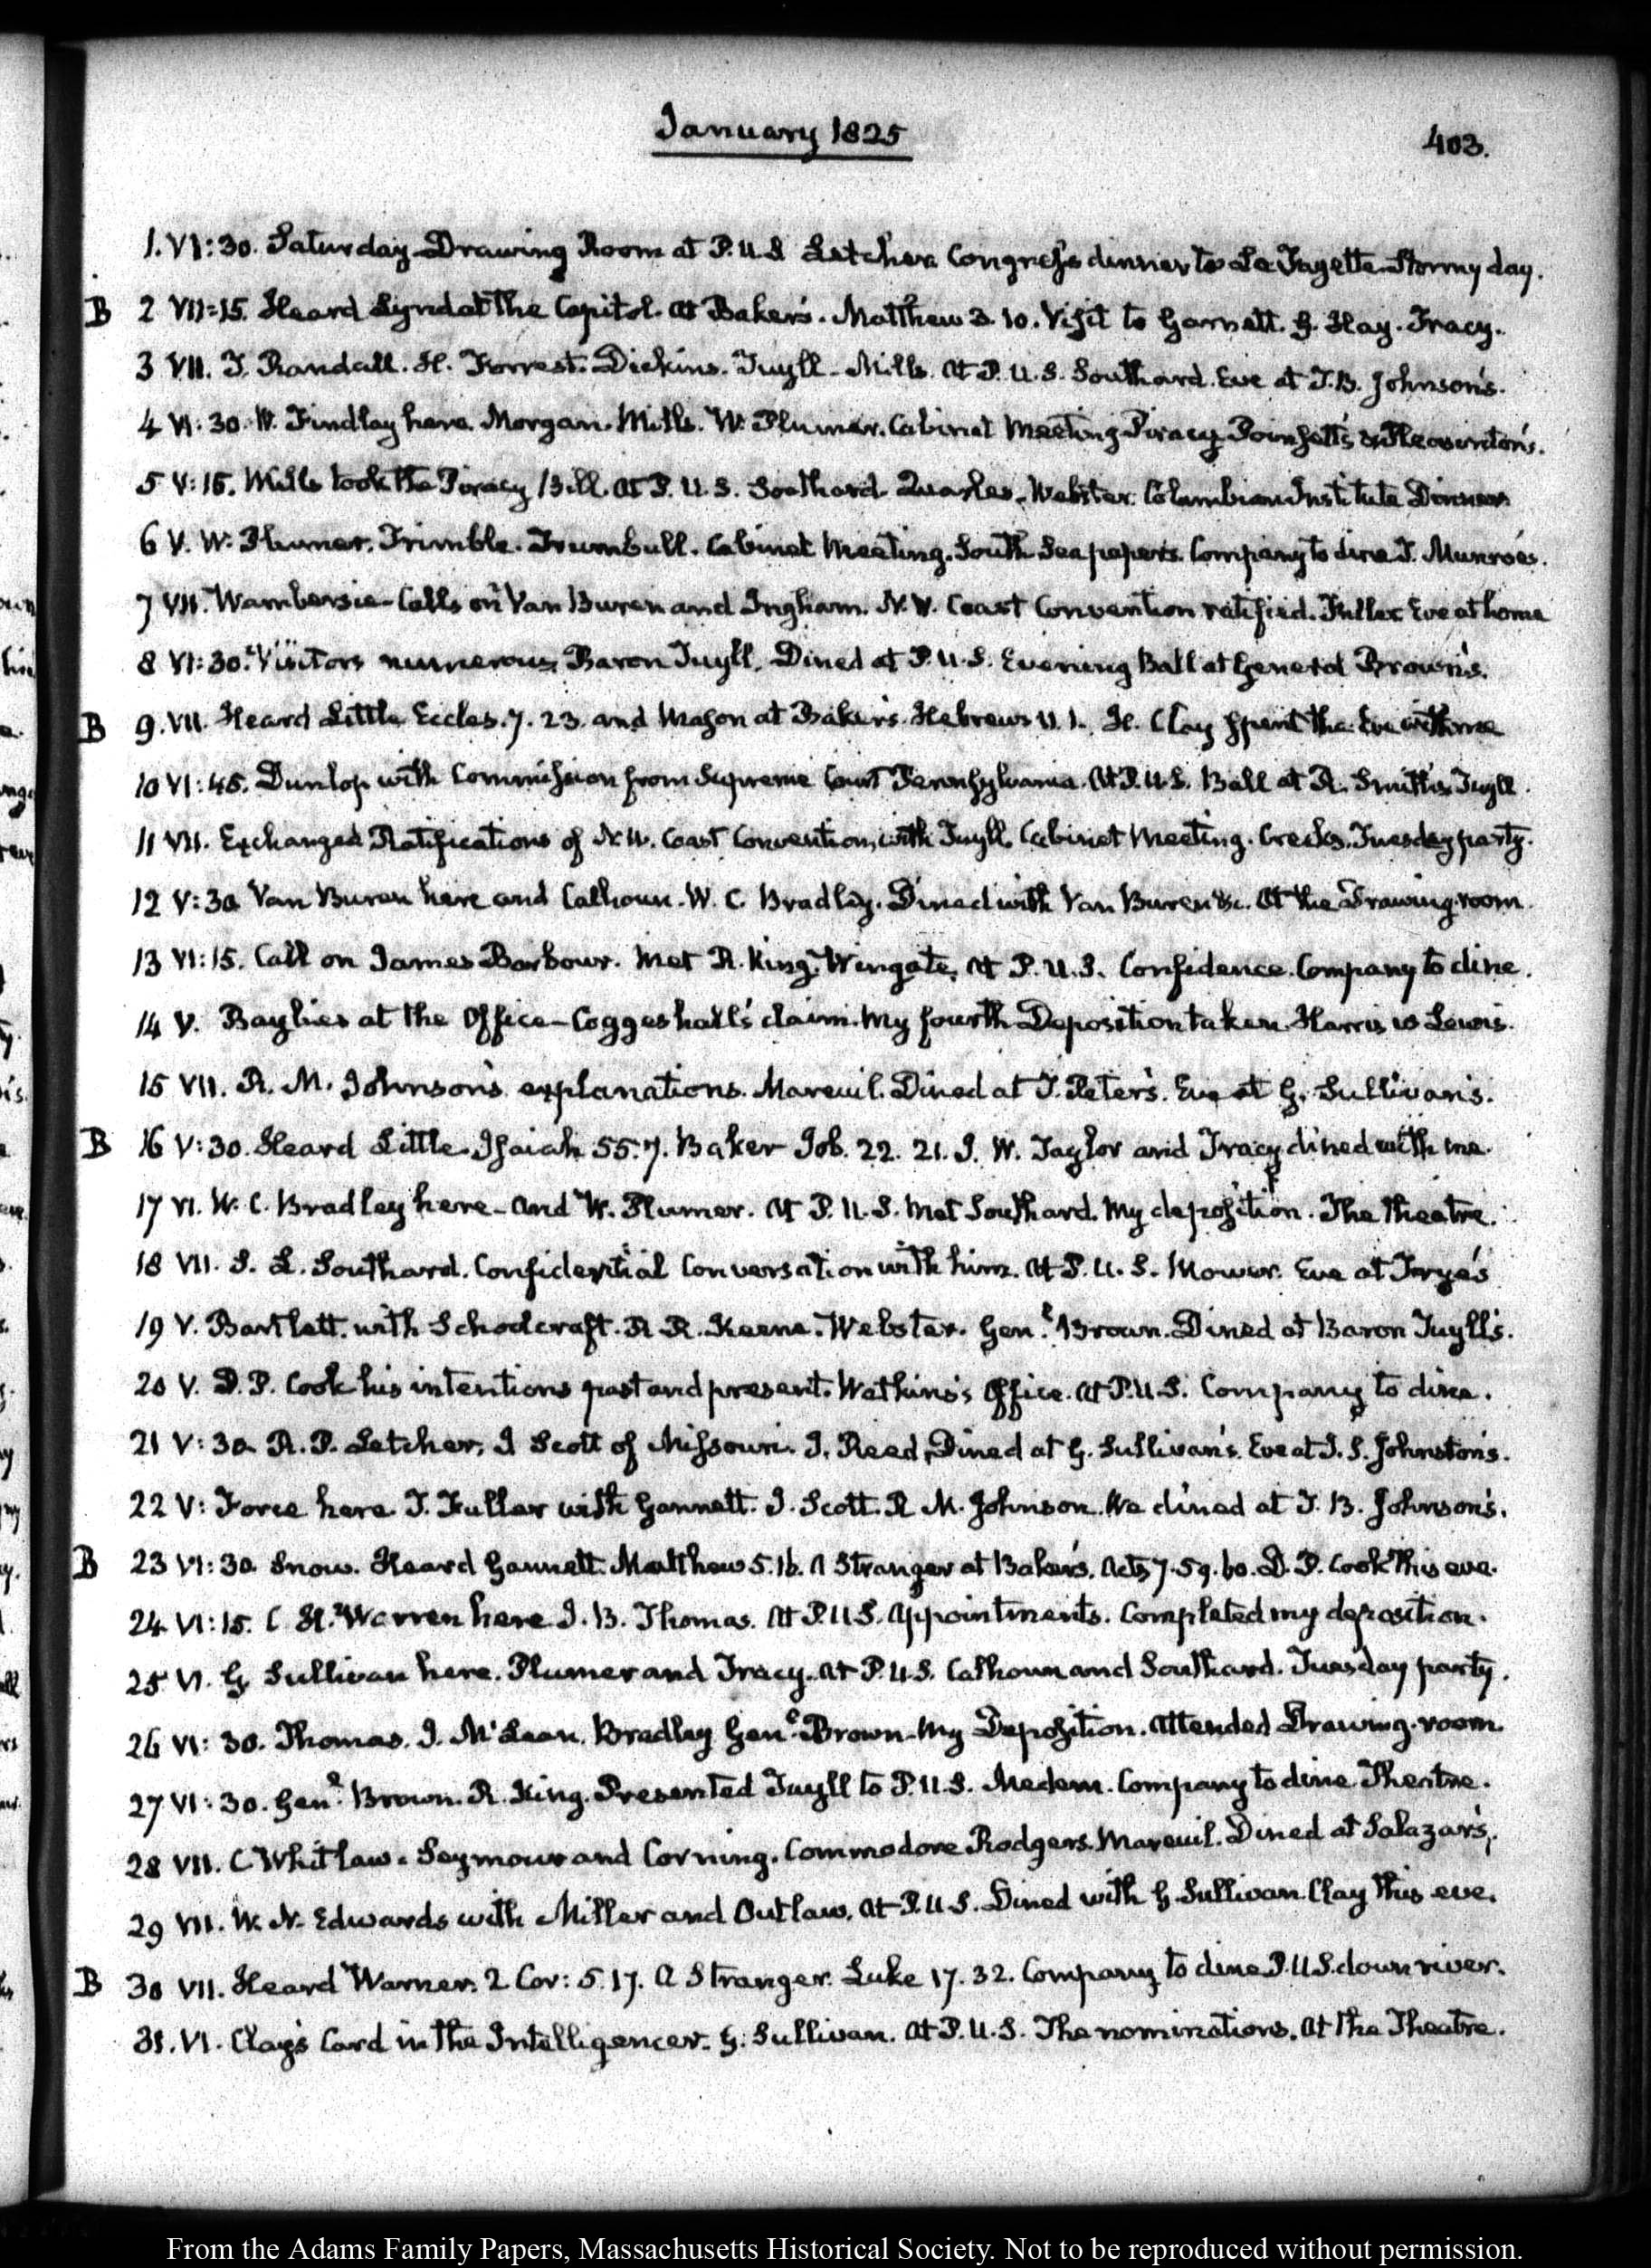 January 1825
403.
1. VI:30. Saturday Drawing Room at P.U.S Letcher. Congress dinner to La Fayette. Stormy day.
B 2 VII:15. Heard Lynd at the Capitol. At Baker's. Matthew 3. 10. Visit to Gannett. G. Hay. Tracy.
3 VII. T. Randall. H. Forrest. Dickins. Tuyll. Mills. At P.U.S. Southard. Eve at J.B. Johnson's.
4 VI:30. W. Findlay here. Morgan. Mills. W. Plumer. Cabinet Meeting. Piracy. Poinsett's & Pleasonton's.
5 V:15. Mills took the Piracy Bill. At P.U.S. Southard. Quarles. Webster. Columbian Institute Dinner
6 V. W. Plumer. Trimble. Trumbull. Cabinet Meeting. South Sea papers. Company to dine T. Munroe's.
7 VII. Wambersie. Calls on Van Buren and Ingham. N.W. Coast Convention ratified. Fuller. Eve at home
8 VI:30. Visitors numerous. Baron Tuyll. Dined at P.U.S. Evening Ball at General Brown's.
B 9. VII. Heard Little Eccles. 7. 23. and Mason at Baker's. Hebrews 11. 1. H. Clay spent the Eve with me
10 VI:45. Dunlop with Commission from Supreme Court Pennsylvania. At P.U.S. Ball at R. Smith's. Tuyll.
11 VII. Exchanged Ratifications of N.W. Coast Convention, with Tuyll. Cabinet Meeting. Creeks. Tuesday party.
12 V:30 Van Buren here and Calhoun. W. C. Bradley. Dined with Van Buren &c. At the Drawing-room.
13 VI:15. Call on James Barbour. Met R. King. Wingate. At P.U.S. Confidence. Company to dine.
14 V. Baylies at the Office—Coggeshall's claim. My fourth Deposition taken. Harris vs Lewis.
15 VII. R. M. Johnson's explanations. Mareuil. Dined at T. Peter's. Eve at G. Sullivan's.
B 16 V:30. Heard Little. Isaiah 55. 7. Baker Job. 22. 21. J. W. Taylor and Tracy dined with me.
17 VI. W. C. Bradley here—and W. Plumer. At P.U.S. met Southard. My deposition. The Theatre.
18 VII. S. L. Southard. Confidential Conversation with him. At P.U.S. Mower. Eve at Frye's
19 V. Bartlett. with Schoolcraft. R. R. Keene. Webster. Genl. Brown. Dined at Baron Tuyll's.
20 V. D. P. Cook his intentions past and present. Watkins's Office. At P.U.S. Company to dine.
21 V:30. R. P. Letcher. J Scott of Missouri. J. Reed. Dined at G. Sullivan's. Eve at J. S. Johnston's.
22 V: Force here. T. Fuller with Gannett. J. Scott. R M. Johnson. We dined at J. B. Johnson's.
B 23 VI:30. Snow. Heard Gannett. Matthew 5. 16. A Stranger at Baker's. Acts 7. 59. 60. D. P. Cook this eve.
24 VI:15. C H. Warren here J. B. Thomas. At P.U.S. Appointments. Completed my deposition.
25 VI. G Sullivan here. Plumer and Tracy. At P.U.S. Calhoun and Southard. Tuesday party.
26 VI:30. Thomas. J. McLean. Bradley Genl. Brown. My Deposition. Attended Drawing-room.
27 VI:30. Genl. Brown. R. King. Presented Tuyll to P.U.S. Medem. Company to dine. Theatre.
28 VII. C Whitlaw. Seymour and Corning. Commodore Rodgers. Mareuil. Dined at Salazar's.
29 VII. W. N. Edwards with Miller and Outlaw. At P.U.S. Dined with G. Sullivan. Clay this eve.
B 30 VII. Heard Warner. 2 Cor: 5. 17. A Stranger. Luke 17. 32. Company to dine P.U.S. down river.
31. VI. Clay's Card in the Intelligencer. G. Sullivan. At P.U.S. The nominations. At the Theatre.
From the Adams Family Papers, Massachusetts Historical Society. Not to be reproduced without permission.